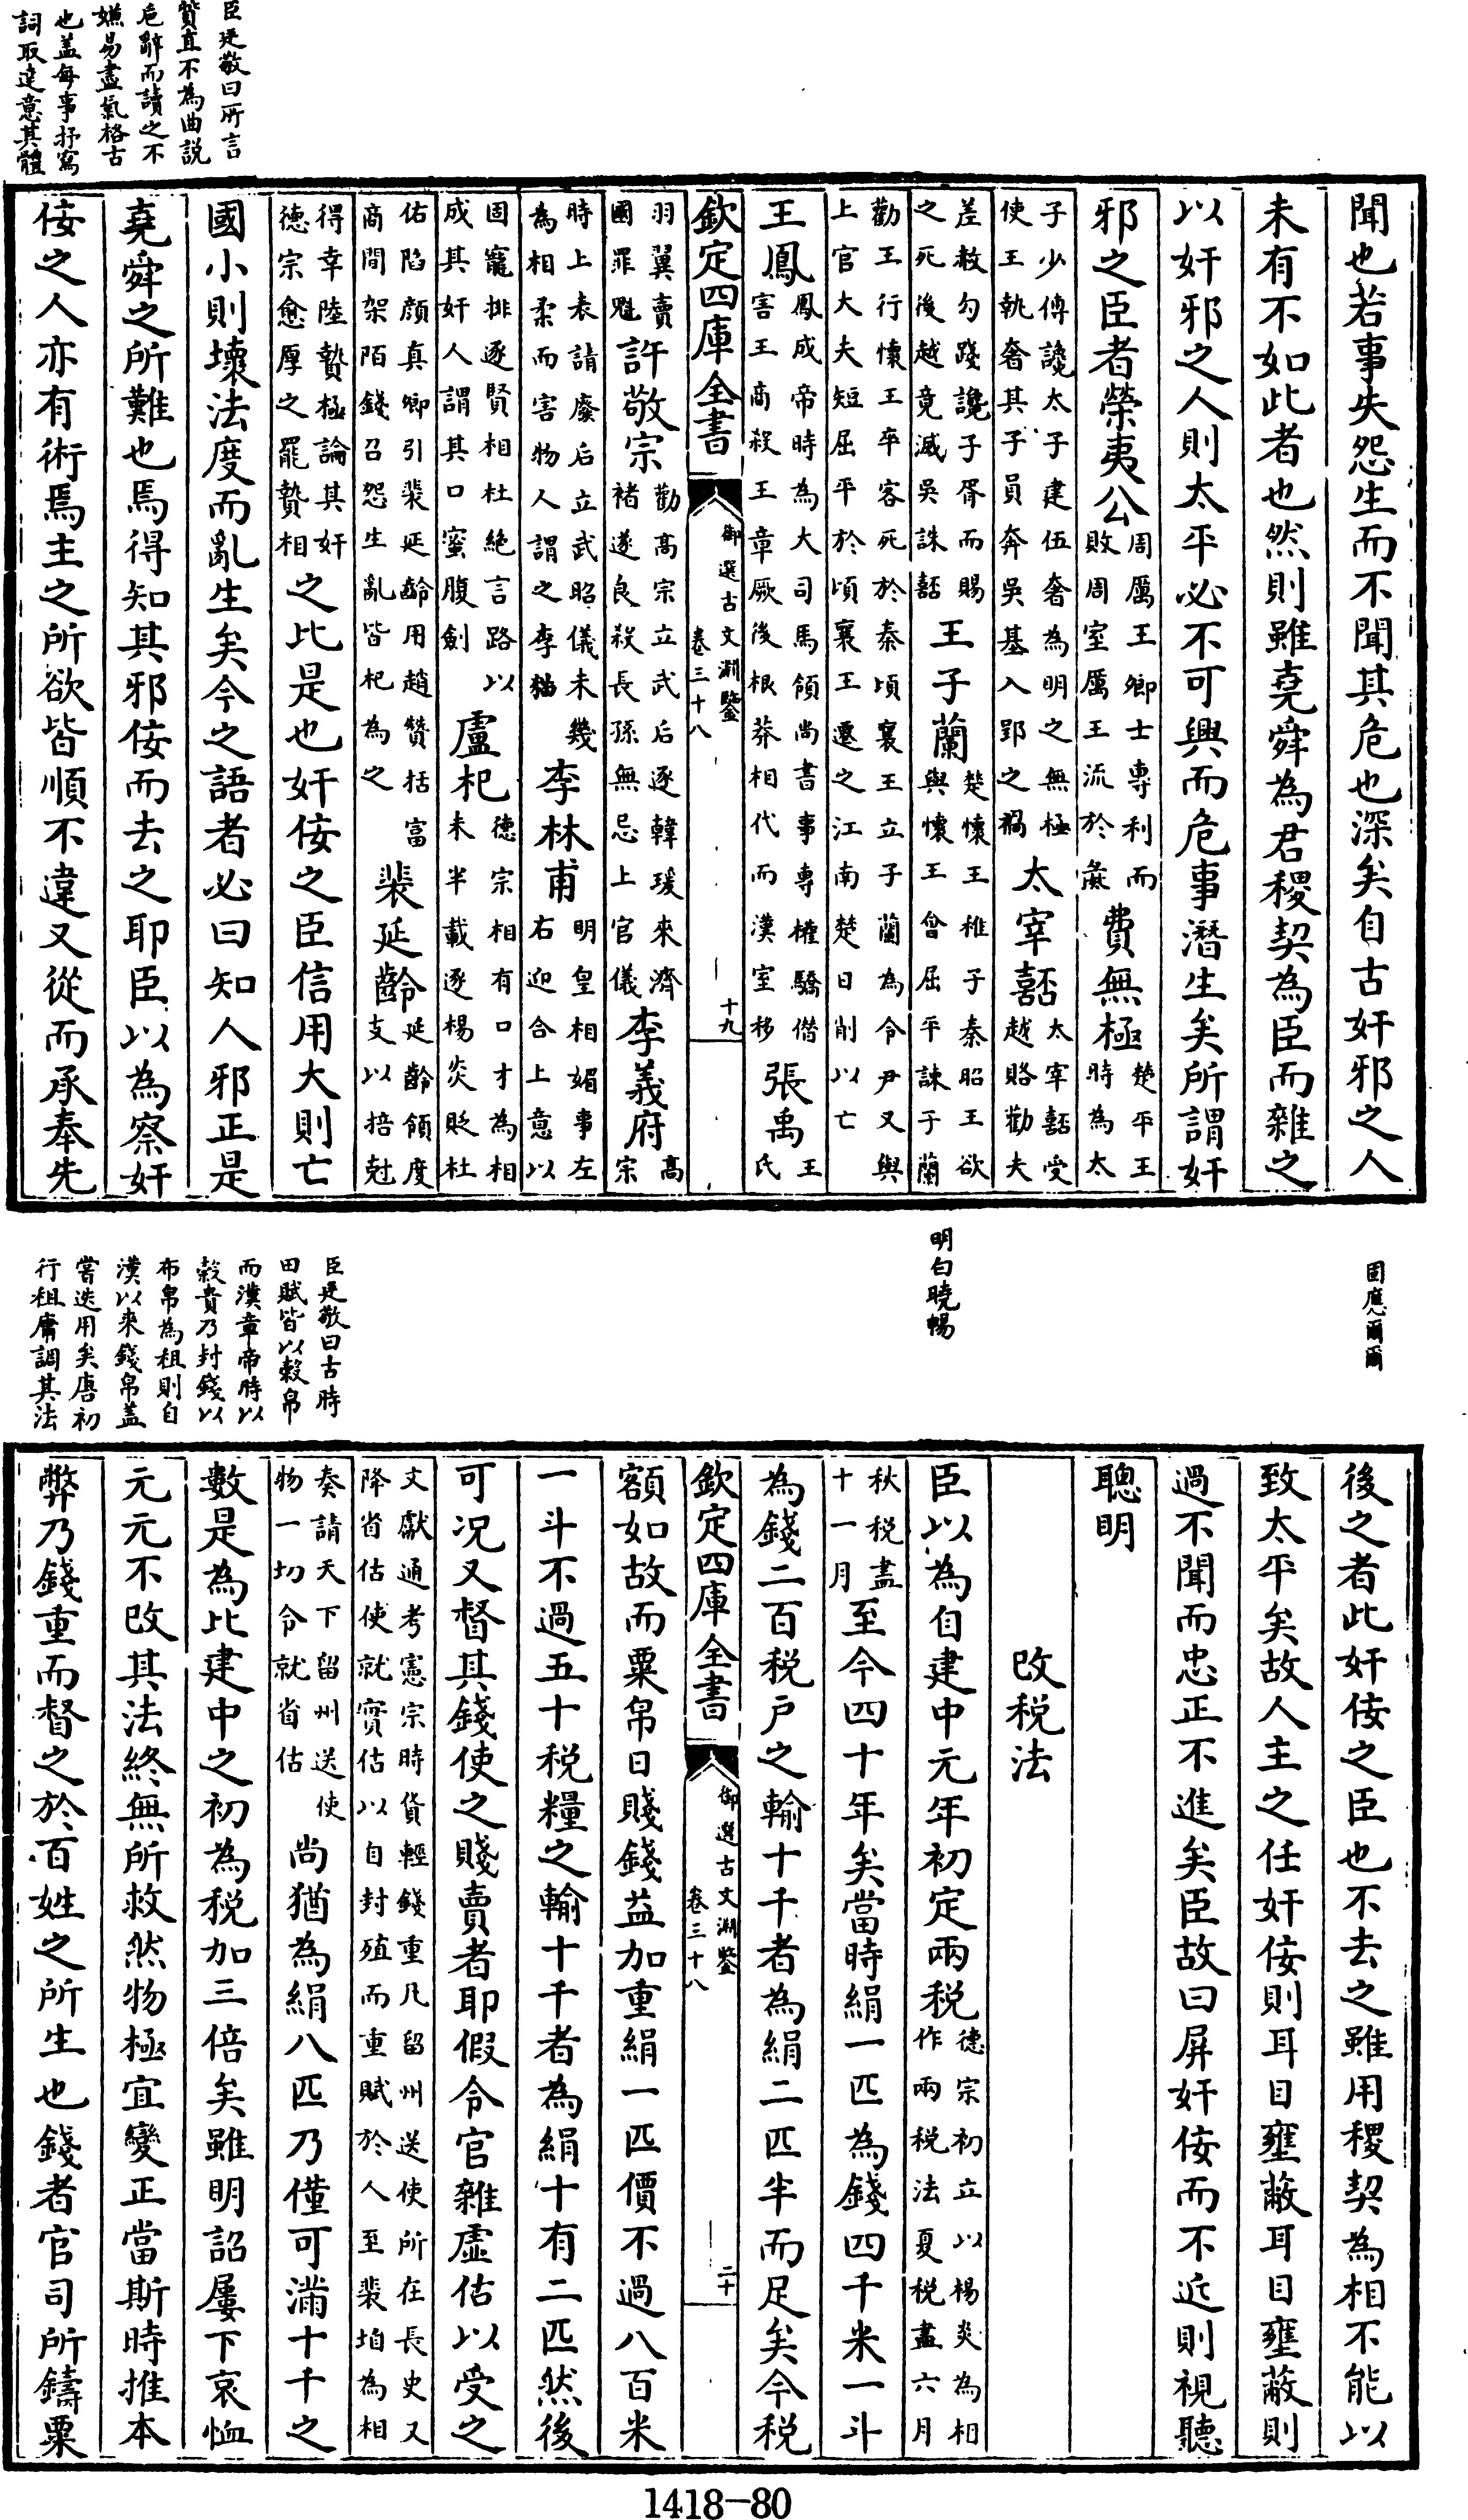 臣廷敬曰所言
質直不為曲説
危辭而讀之不
嫌易盡氣格古
也蓋每事抒寫
詞取達意其體
聞也若事失怨生而不聞其危也深矣自古奸邪之人
未有不如此者也然則雖堯舜為君稷契為臣而雜之
以奸邪之人則太平必不可興而危事潛生矣所謂奸
邪之臣者榮夷公周厲王卿士專利而敗周室厲王流於彘費無極楚平王時為太
子少傅讒太子建伍奢為明之無極使王執奢其子員奔吳基入郢之禍太宰嚭太宰嚭受越賂勸夫
差赦勾踐讒子胥而賜之死後越竟滅吳誅嚭王子蘭楚懷王稚子秦昭王欲與懷王會屈平諫子蘭
勸王行懷王卒客死於秦頃襄王立子蘭為令尹又與上官大夫短屈平於頃襄王遷之江南楚日削以亡
王鳳鳳成帝時為大司馬領尚書事專權驕僭害王商殺王章厥後根莽相代而漢室移張禹王氏
欽定四庫全書 御選古文淵鑒卷三十八 十九
羽翼賣國罪魁許敬宗勸高宗立武后逐韓瑗來濟褚遂良殺長孫無忌上官儀李義府高宗
時上表請廢后立武昭儀未幾為相柔而害物人謂之李猫李林甫明皇相媚事左右迎合上意以
固寵排逐賢相杜絶言路以成其奸人謂其口蜜腹劍盧杞德宗相有口才為相未半載逐楊炎貶杜
佑陷顔真卿引裴延齡用趙贊括富商間架陌錢召怨生亂皆杞為之裴延齡延齡領度支以掊尅
得幸陸贄極論其奸德宗愈厚之罷贄相之比是也奸佞之臣信用大則亡
國小則壞法度而亂生矣今之語者必曰知人邪正是
堯舜之所難也焉得知其邪佞而去之耶臣以為察奸
佞之人亦有術焉主之所欲皆順不違又從而承奉先
固應爾爾
明白曉暢
臣廷敬曰古時
田賦皆以穀帛
而漢章帝時以
穀貴乃封錢以
布帛為租則自
漢以來錢帛蓋
嘗迭用矣唐初
行租庸調其法
後之者此奸佞之臣也不去之雖用稷契為相不能以
致太平矣故人主之任奸佞則耳目壅蔽耳目壅蔽則
過不聞而忠正不進矣臣故曰屏奸佞而不近則視聽
聰明
改税法
臣以為自建中元年初定兩税德宗初立以楊炎為相作兩税法夏税盡六月
秋税盡十一月至今四十年矣當時絹一匹為錢四千米一斗
為錢二百税戶之輸十千者為絹二匹半而足矣今税
欽定四庫全書 御選古文淵鑒卷三十八 二十
額如故而粟帛日賤錢益加重絹一匹價不過八百米
一斗不過五十税糧之輸十千者為絹十有二匹然後
可況又督其錢使之賤賣者耶假令官雜虛估以受之
文獻通考憲宗時貨輕錢重凡留州送使所在長史又降省估使就實估以自封殖而重賦於人至裴垍為相
奏請天下留州送使物一切令就省估尚猶為絹八匹乃僅可滿十千之
數是為比建中之初為税加三倍矣雖明詔屢下哀恤
元元不改其法終無所救然物極宜變正當斯時推本
弊乃錢重而督之於百姓之所生也錢者官司所鑄粟
1418-80